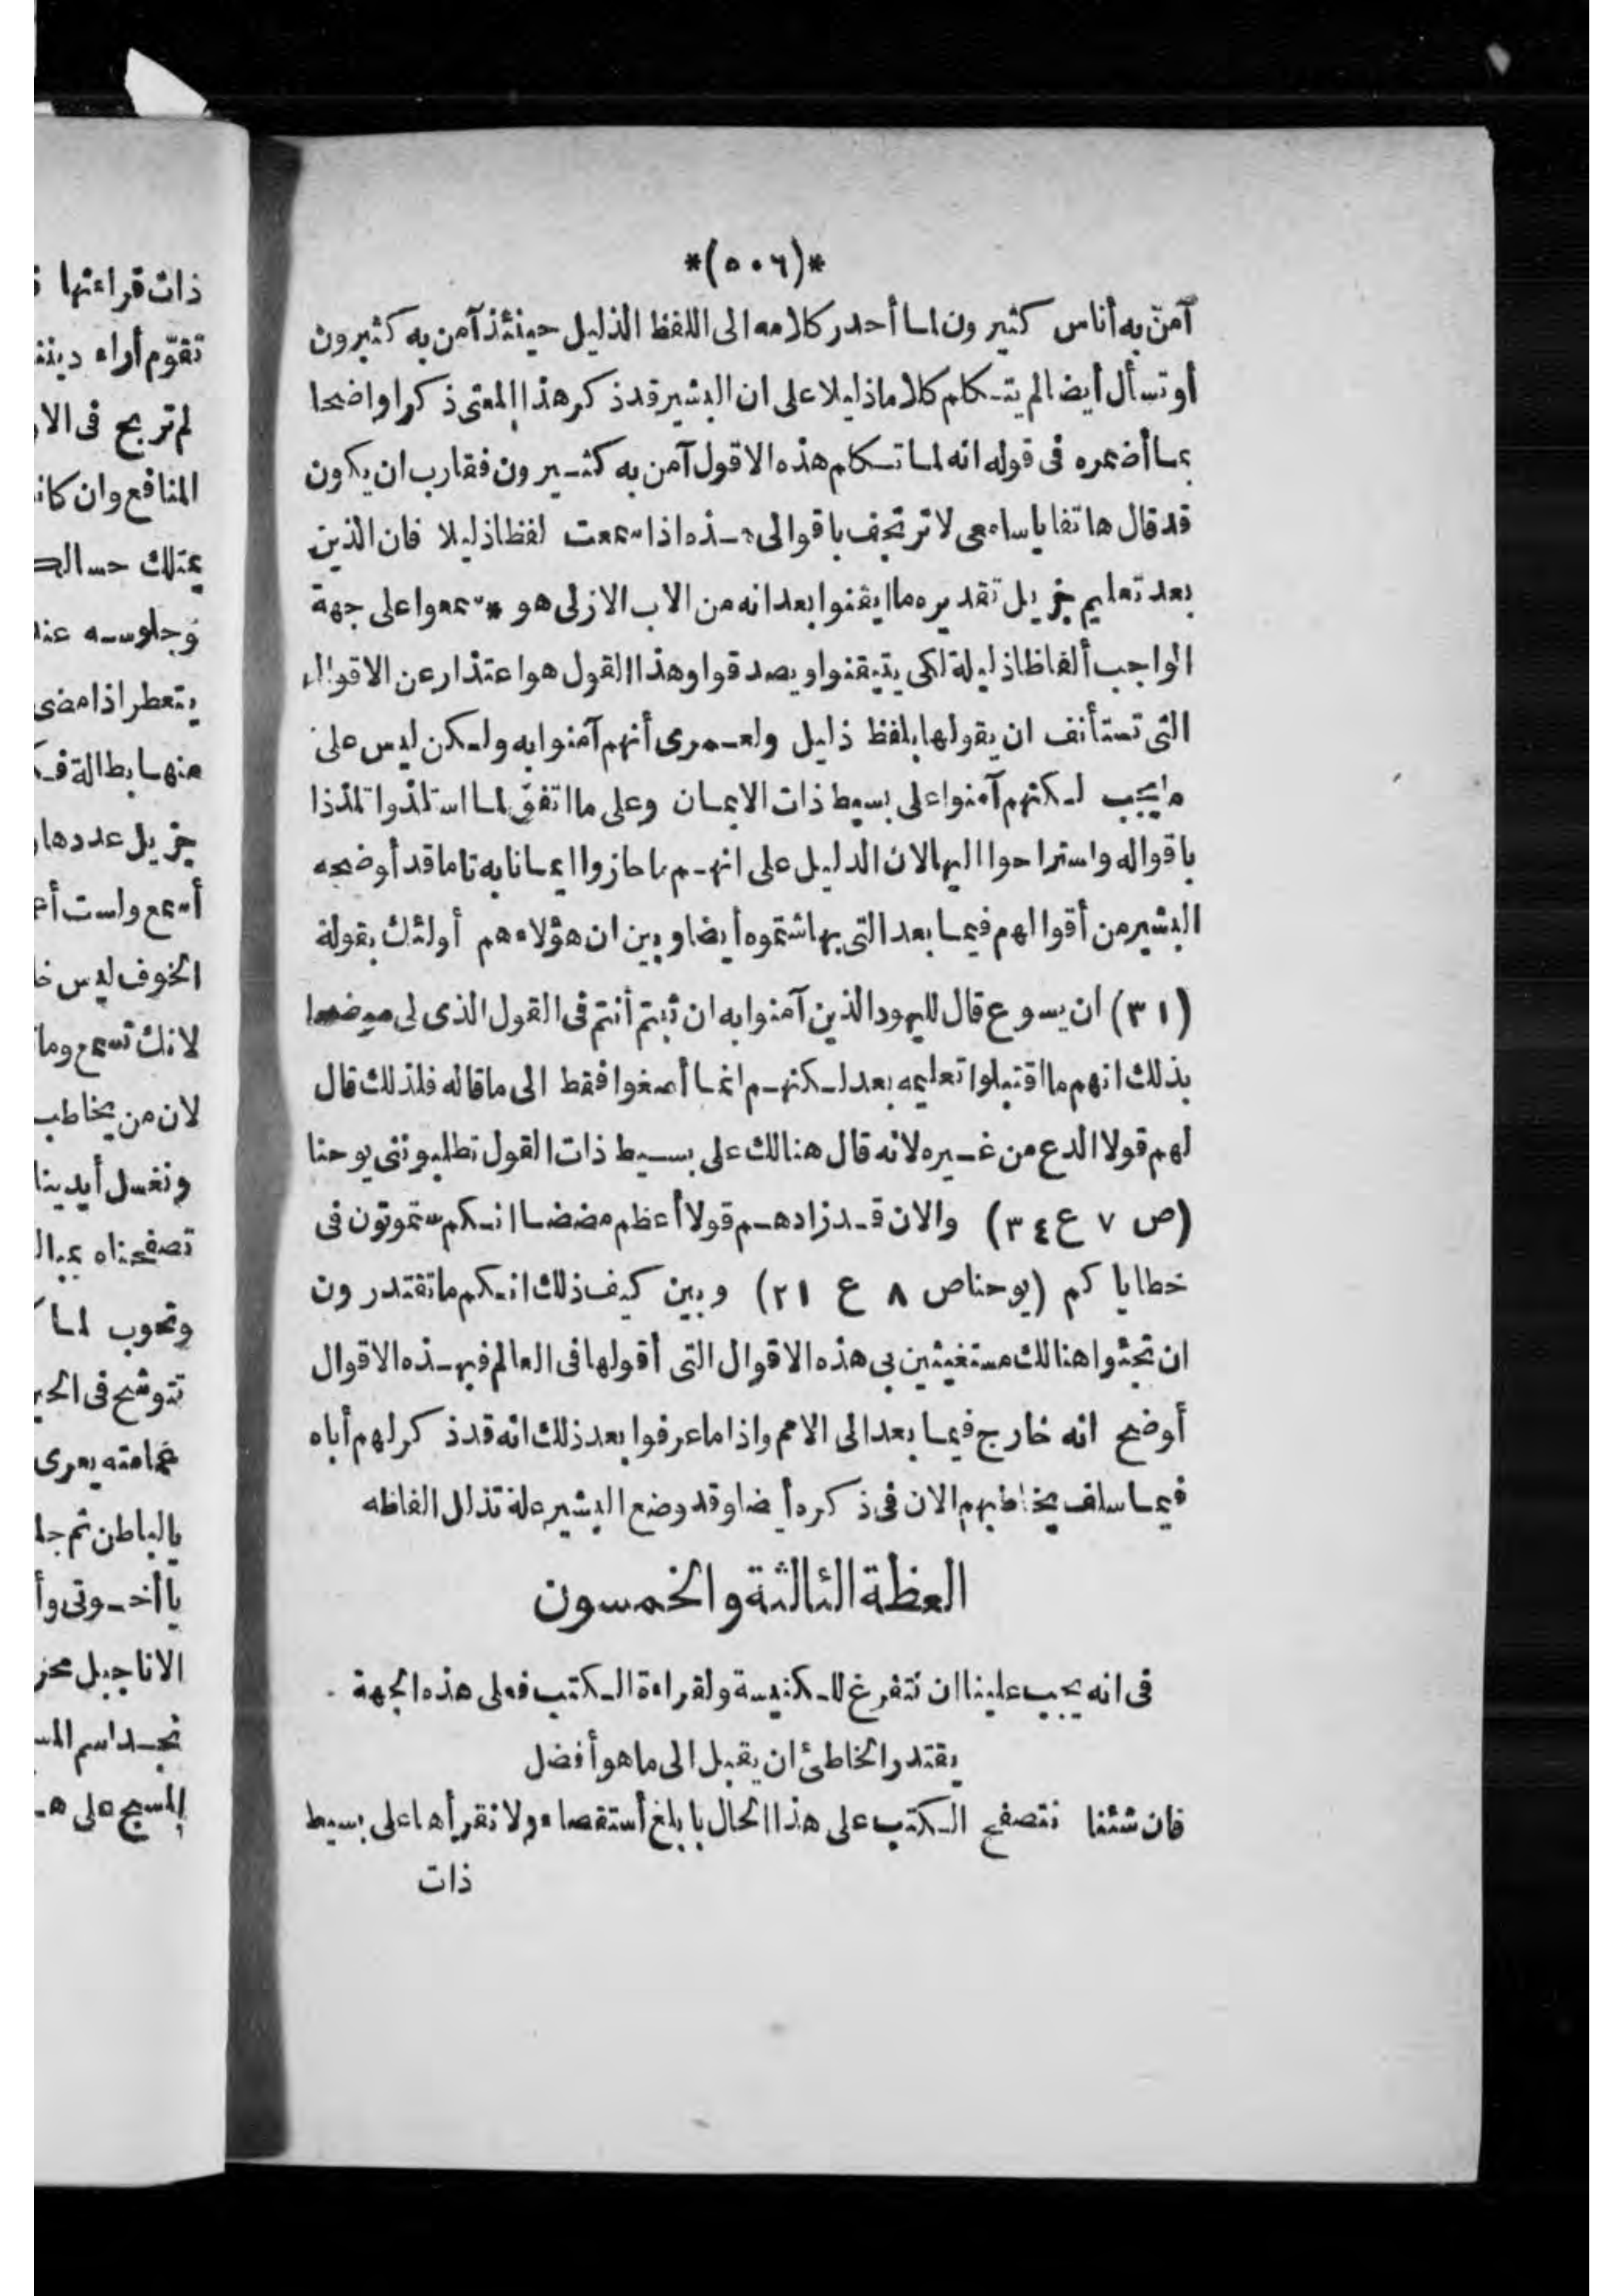 *(٥٠٦)*
آمن به أناس كثيرون لما أحدر كلامه الى اللفظ الذليل حينئذ آمن به كثيرون
أو تسأل أيضا لم يتكلم كلاما ذليلا على ان البشير قد ذكر هذا المعنى ذكرا واضحا
بما أضمره فى قوله انه لما تكلم هذه الاقول آمن به كثيرون فقارب ان يكون
قد قال هاتفا ياسامعى لا ترتجف باقوالى هذه اذا سمعت لفظا ذليلا فان الذين
بعد تعليم جزيل تقديره ما ايقنوا بعد انه من الاب الازلى هو * سمعوا على جهة
الواجب ألفاظا ذليلة لكى يتيقنوا ويصدقوا وهذا القول هو اعتذار عن الاقوال
التى تستأنف ان يقولها بلفظ ذليل ولعمرى أنهم آمنوا به ولكن ليس على
مايجب لكنهم آمنوا على بسيط ذات الايمان وعلى ما اتفق لما استلذوا تلذذا
باقواله واستراحوا اليها لان الدليل على انهم ما حازوا ايمانا به تاما قد أوضحه
البشير من أقوالهم فيما بعد التى بها شتموه أيضا وبين ان هؤلاء هم أولئك بقولة
(٣١) ان يسوع قال لليهود الذين آمنوا به ان ثبتم أنتم فى القول الذى لى موضحا
بذلك انهم ما اقتبلوا تعليمه بعد لكنهم انما أصغوا فقط الى ماقاله فلذلك قال
لهم قولا الدع من غيره لانه قال هنالك على بسيط ذات القول تطلبوننى يوحنا
(ص ٧ ع ٣٤) والان قد زادهم قولا أعظم مضضا انكم ستموتون فى
خطاياكم (يوحنا ص ٨ ع ٢١) وبين كيف ذلك انكم ماتقتدرون
ان تجثوا هنالك مستغيثين بى هذه الاقوال التى أقولها فى العالم فبهذه الاقوال
أوضح انه خارج فيما بعد الى الامم واذا ماعرفوا بعد ذلك انه قد ذكر لهم أباه
فيما سلف يخاطبهم الان فى ذكره أيضا وقد وضع البشير علة تذلل الفاظه
العظة الثالثة والخمسون
فى انه يجب علينا ان نتفرغ للكنيسة ولقراءة الكتب فعلى هذه الجهة
يقتدر الخاطئ ان يقبل الى ما هو أفضل
فان شئنا نتصفح الكتب على هذا الحال بابلغ أستقصاء ولا نقرأها على بسيط
ذات
ذات قراءتها
تقوّم أراء
لم تربح فى
المنافع وان
يمتلك
وجلوسه
يتعطر اذا مضى
منها بطالة
جزيل عددها
أسمع ولست
الخوف ليس
لانك تسمع
لان من يخاطب
ونغسل أيدينا
تصفحناه
ونجوب لما
تتوشح فى
يعرى
بالباطن ثم
ياأخوتى
الاناجيل
نجد اسم
المسيح على